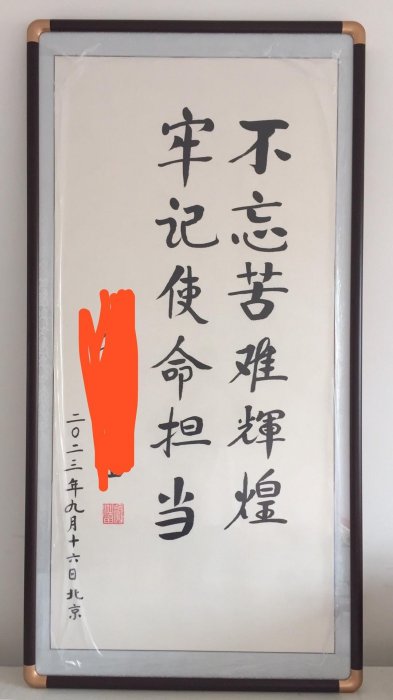 不忘苦难輝煌
牢记使命担当
二〇二三年九月十六日北京